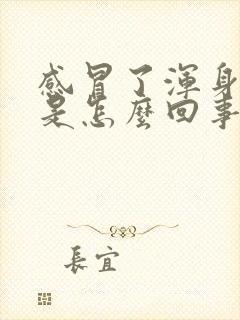 感冒了渾身
是怎麼回事
長宜